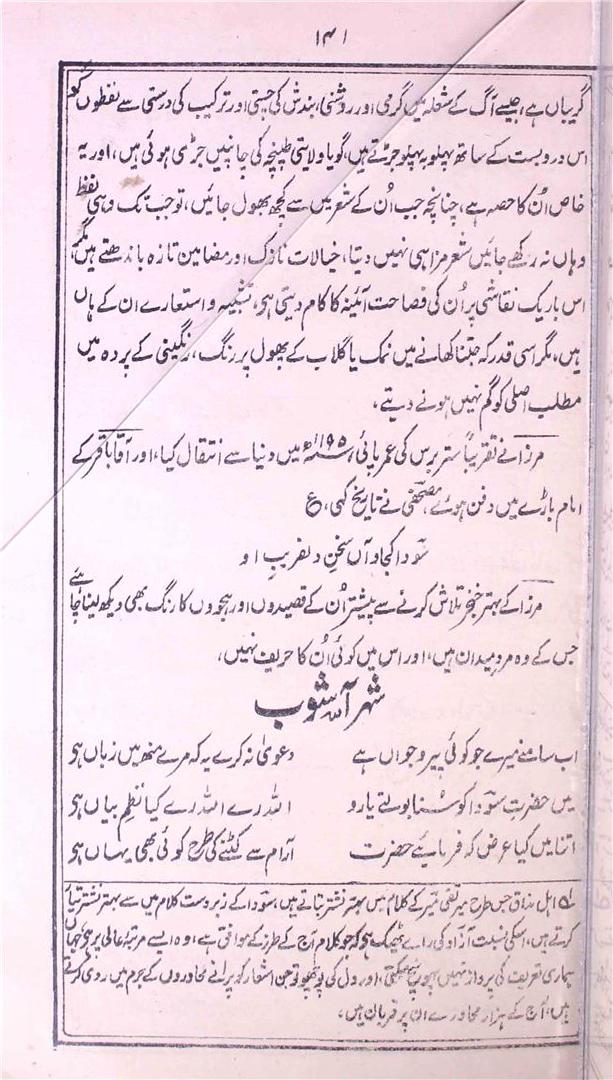 ۱۴۱
گریباں ہے، جیسے آگ کے شعلہ میں گرمی اور روشنی، بندش کی چستی اور ترکیب کی درستی سے لفظوں کو
اس دروبست کے ساتھ پہلو بہ پہلو جڑتے ہیں، گویا ولایتی طپنچہ کی چانپیں چڑھی ہوئی ہیں، اور یہ
خاص اُن کا حصہ ہے، چنانچہ جب اُن کے شعر میں سے کچھ بھول جائیں، تو جب تک وہی لفظ
وہاں نہ رکھے جائیں شعر مزا ہی نہیں دیتا، خیالات نازک اور مضامین تازہ باندھتے ہیں، مگر
اس باریک نقاشی پر اُن کی فصاحت آئینہ کا کام دیتی ہی، تشبیہ و استعارے ان کے ہاں
ہیں، مگر اسی قدر کہ جتنا کھانے میں نمک یا گلاب کے پھول پر رنگ، رنگینی کے پردہ میں
مطلب اصلی کو گم نہیں ہونے دیتے،
مرزا نے تقریباً ستر برس کی عمر پائی، ۱۱۹۵ھ میں دنیا سے انتقال کیا، اور آقا باقر کے
امام باڑے میں دفن ہوئے، مصحفی نے تاریخ کہی، ع
سودا کجا و آں سخنِ دلفریبِ او
مرزا کے بہتر خنجر تلاش کرنے سے پیشتر اُن کے قصیدوں اور ہجووں کا رنگ بھی دیکھ لینا چاہئے
جس کے وہ مردِ میدان ہیں، اور اس میں کوئی اُن کا حریف نہیں،
شہر آشوب
اب سامنے میرے جو کوئی پیر و جواں ہے دعویٰ نہ کرے یہ کہ مرے منھ میں زباں ہی
میں حضرتِ سودا کو سُنا بولتے یارو اللہ رے اللہ رے کیا نظمِ بیاں ہی
اتنا میں کیا عرض کہ فرمائیے حضرت آرام سے کٹنے کی طرح کوئی بھی یہاں ہی
لہ اہل مذاق جس طرح میر تقی میر کے کلام میں بہتر نشتر بتاتے ہیں، سودا کے زبردست کلام میں سے بہتر نشتر تیار
کرتے ہیں، اسکی نسبت آزاد کی رائے ٹھیک ہی کہ جو کلام آج کے طرز کے موافق ہے، وہ ایسے مرتبۂ عالی پر ہی جہاں
ہماری تعریف کی پرواز نہیں پہونچ سکتی، اور دل کی پوچھو تو جن اشعار کو پرانے محاوروں کے جرم میں ردی کرتے
ہیں، آج کے ہزار محاورے ان پر قربان ہیں،